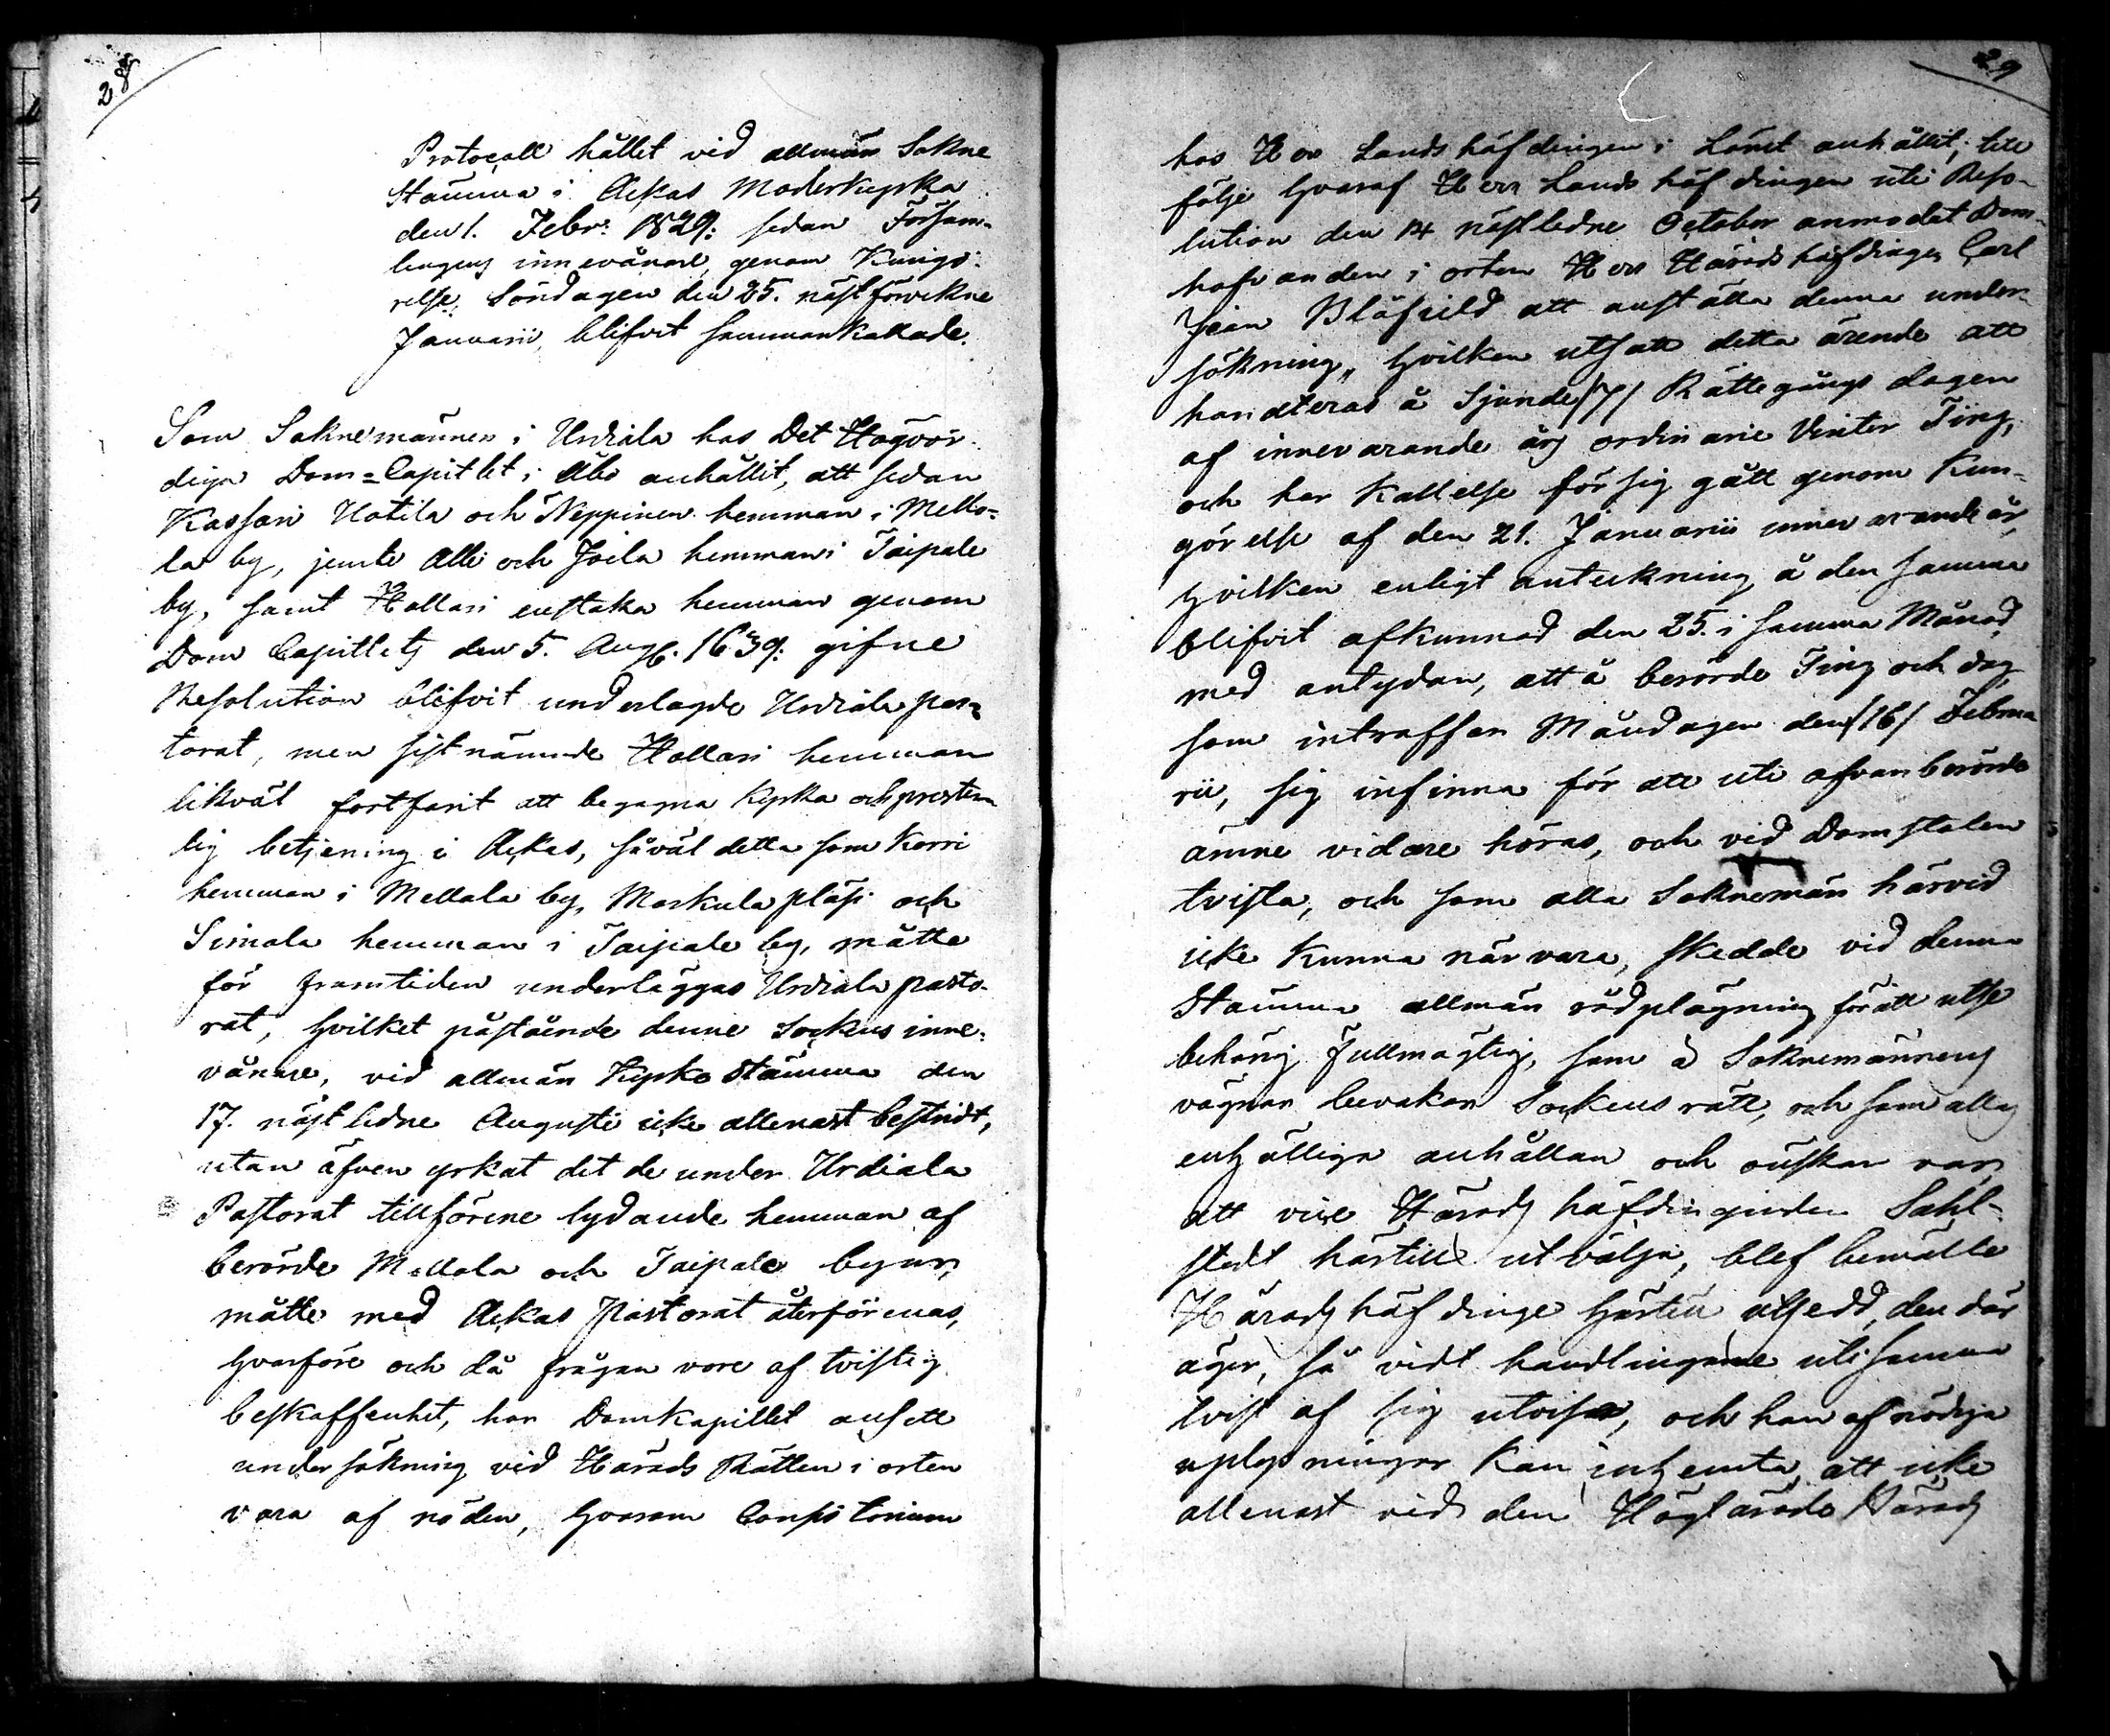 28
Protocoll hållet vid allmän Sokne
Stämma i Ackas Moderkyrka
den 1. Febr: 1829: sedan Försam-
lingens innevånare, genom Kungö-
relse, Söndagen den 25. nästförvikne
Januarii, blifvit sammankallade.
Som Soknemännen i Urdiala hos Det Högvör-
diga Dom-Capitlet i Åbo anhållit, att sedan
Kassari Uotila och Neppinen hemman i Mello-
la by, jemte Alli och Joila hemman i Taipale
by, samt Hallari enstaka hemman genom
Dom Capitlets den 5. Aug. 1639: gifne
Resolution blifvit underlagde Urdiala pas-
torat, men sistnämnde Hallari hemman
likväl fortfarit att begagna Kyrka och prester-
lig betjening i Ackas, såväl detta som Korri
hemman i Mellola by, Maskula pläsi och
Simola hemman i Taipale by, måtte
för framtiden underläggas Urdiala pasto-
rat, hvilket påstående denne Sockens inne-
vånare, vid allmän Kyrko Stämma den
17. nästledne Augusti icke allenast bestridt,
utan äfven yrkat det de under Urdiala
Pastorat tillförene lydande hemman af
berörde Mellola och Taipale byar,
måtte med Ackas Pastorat återförenas,
hvarföre och då frågan vore af tvistig
beskaffenhet, har Domkapitlet ansett
undersökning vid Härads Rätten i orten
vara af nöden, hvarom Consistorium
29
hos Herr Landshöfdingen i Länet anhållit; till
följe hvaraf Herr Landshöfdingen uti Reso-
lution den 14 nästledne October anmodat Dom-
hafvanden i orten Herr Häradshöfdingen Carl
Joan Blåfield att anställa denna under-
sökning, hvilken utsatt detta ärende att
handteras å Sjunde /7/ Rättegångs dagen
af innevarande års ordinarie Vinter Ting,
och har Kallelse försig gått genom Kun-
görelse af den 21. Januarii innevarande år,
hvilken enligt anteckning å den samma
blifvit afkunnad den 25. i samma Månad,
med antydan, att å berörde Ting och dag,
som intraffar Måndagen den /16/ Februa
rii, sig infinna för att uti ofvanberörde
ämne vidare höras, och vid Domstolen
tvista, och som alla Soknemän härvid
icke kunna närvara, skedde vid denna
Stämma allmän rådplägning för att utse
behörig Fullmägtig, som å Soknemännens
vägnar bevakar Sockens rätt, och som allas
enhälliga anhållan och önskan var,
att vice Häradshöfdingen Sahl-
stedt härtill utvälja, blef bemälte
Häradshöfdinge härtill utsedd, den där
äger, så vidt handlingarne uti samma
tvist af sig utvisa, och han af nödiga
uplysningar kan inhemta, att icke
allenast vid den Höglärade Härads